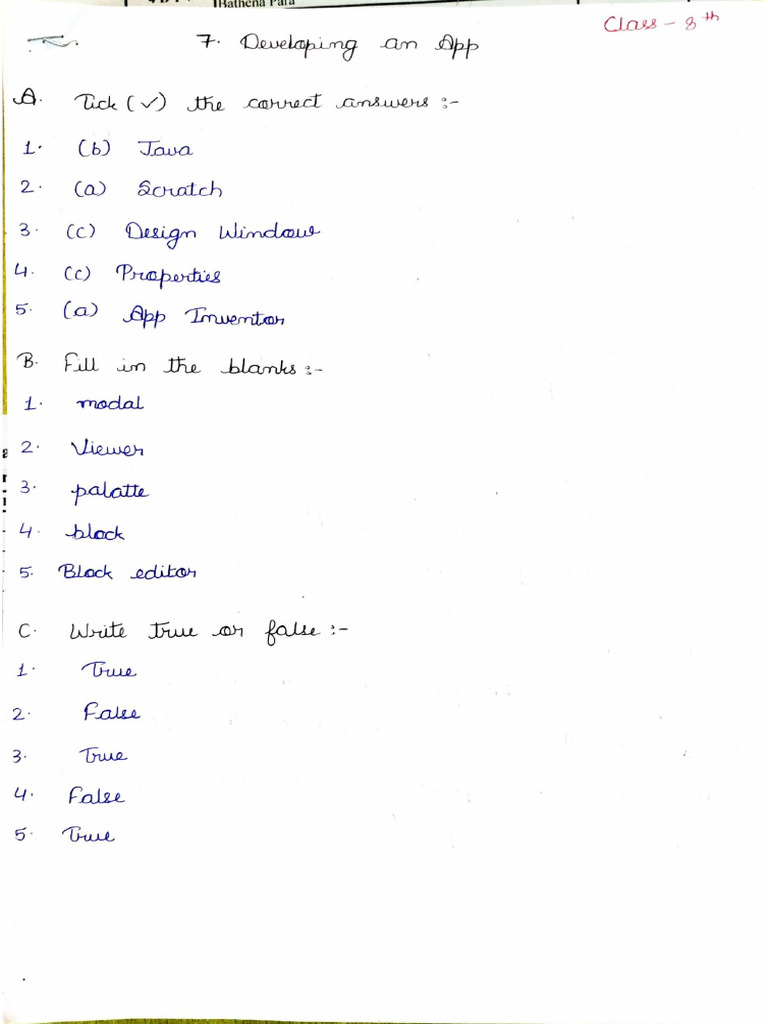 Bathena Para
Class - 8th
7. Developing an App
A. Tick (✓) the correct answers :-
1. (b) Java
2. (a) Scratch
3. (c) Design Window
4. (c) Properties
5. (a) App Inventor
B. Fill in the blanks :-
1. modal
2. Viewer
3. palatte
4. block
5. Block editor
C. Write True or false :-
1. True
2. False
3. True
4. False
5. True